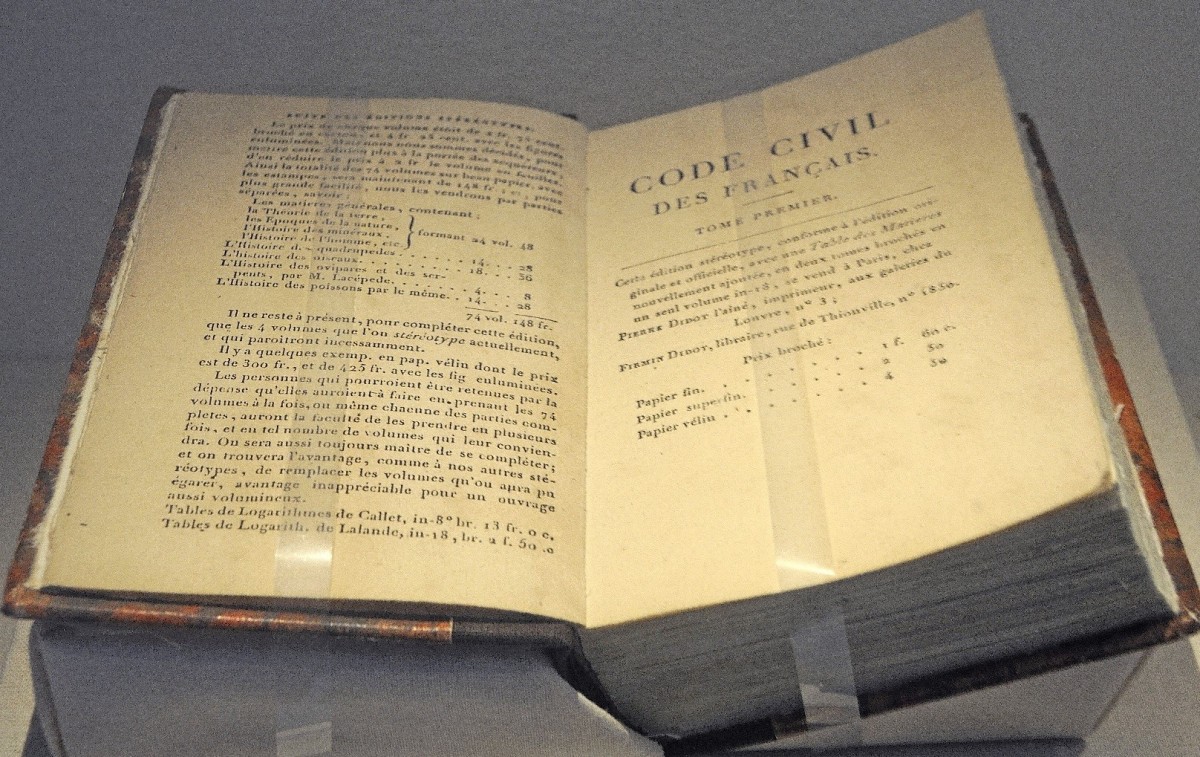 SUITE DES ÉDITIONS STÉRÉOTYPES.
Le prix de chaque volume étoit de 2 fr. 75 cent.
broché en carton, et 4 fr. 25 cent. avec les figures
enluminées. Mais nous nous sommes décidés, pour
mettre cette édition plus à la portée des acquéreurs,
d'en réduire le prix à 2 fr. le volume en feuilles.
Ainsi la totalité des 74 volumes sur beau papier, avec
les estampes, sera maintenant de 148 fr. : et pour
plus grande facilité, nous les vendrons par parties
séparées, savoir :
Les matieres générales, contenant :
la Théorie de la terre,
les Epoques de la nature,
l'Histoire des minéraux,
l'Histoire de l'homme, etc.
formant 24 vol. 48
L'Histoire des quadrupedes . . . . . . 14 . . . 28
L'Histoire des oiseaux . . . . . . 18 . . . 36
L'Histoire des ovipares et des ser-
pents, par M. Lacépede . . . . . . 4 . . . 8
L'Histoire des poissons par le même . . 14 . . . 28
74 vol. 148 fr.
Il ne reste à présent, pour compléter cette édition,
que les 4 volumes que l'on stéréotype actuellement,
et qui paroitront incessamment.
Il y a quelques exemp. en pap. vélin dont le prix
est de 300 fr., et de 425 fr. avec les fig enluminées.
Les personnes qui pourroient être retenues par la
dépense qu'elles auroient à faire en prenant les 74
volumes à la fois, ou même chacune des parties com-
pletes, auront la faculté de les prendre en plusieurs
fois, et en tel nombre de volumes qui leur convien-
dra. On sera aussi toujours maitre de se compléter ;
et on trouvera l'avantage, comme à nos autres sté-
réotypes, de remplacer les volumes qu'on aura pu
égarer, avantage inappréciable pour un ouvrage
aussi volumineux.
Tables de Logarithmes de Callet, in-8° br. 13 fr. 0 c.
Tables de Logarith. de Lalande, in-18, br. 2 f. 50 c
CODE CIVIL
DES FRANÇAIS.
TOME PREMIER.
Cette édition stéréotype, conforme à l'édition ori-
ginale et officielle, avec une Table des Matieres
nouvellement ajoutée, en deux tomes brochés en
un seul volume in-18, se vend à Paris, chez
PIERRE DIDOT l'aîné, imprimeur, aux galeries du
Louvre, n° 3 ;
FIRMIN DIDOT, libraire, rue de Thionville, n° 1850.
Prix broché :
Papier fin. . . . . . . . . 1 f. 60 c.
Papier superfin. . . . . . . 2 50
Papier vélin . . . . . . . . 4 50